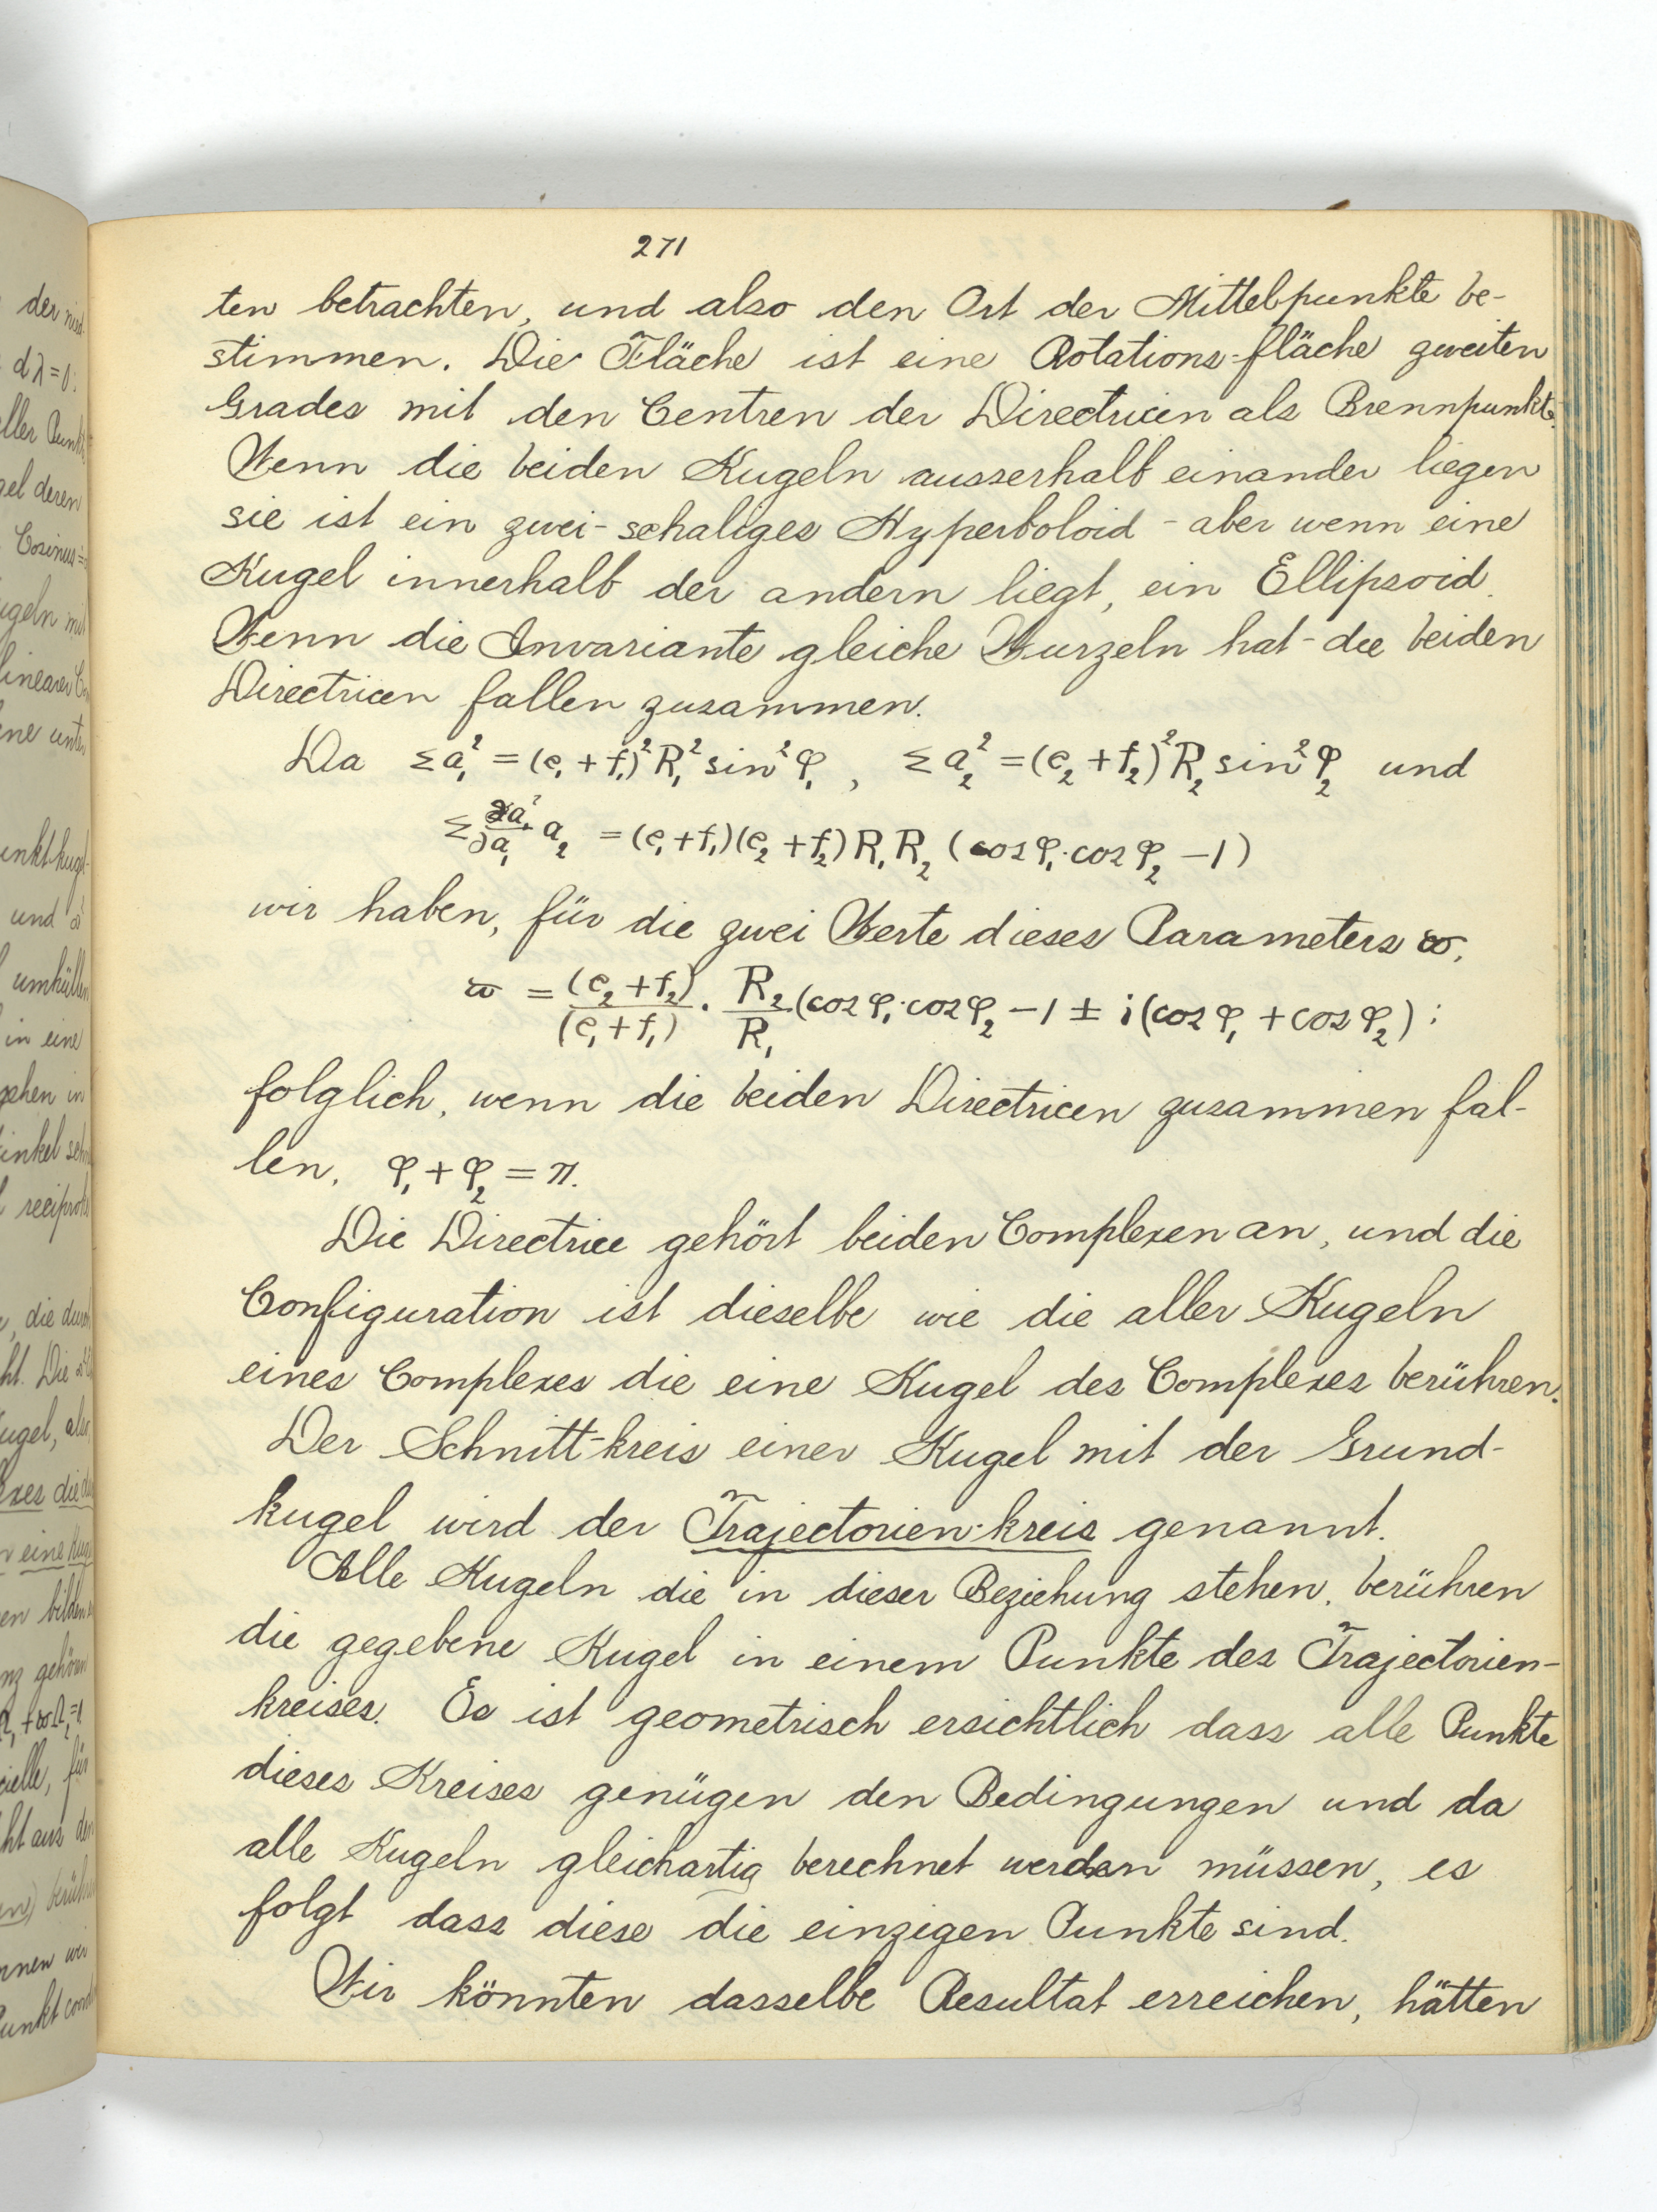 271
ten betrachten, und also den Ort der Mittelpunkte be-
stimmen. Die Fläche ist eine Rotations-fläche zweiten
Grades mit den Centren der Directricen als Brennpunkte.
Wenn die beiden Kugeln ausserhalb einander liegen
sie ist ein zwei-schaliges Hyperboloid - aber wenn eine
Kugel innerhalb der andern liegt, ein Ellipsoid.
Wenn die Invariante gleiche Wurzeln hat - die beiden
Directricen fallen zusammen.
Da Σa₁² = (e₁ + f₁)² R₁² sin² φ₁ , Σa₂² = (e₂ + f₂)² R₂ sin² φ₂ und
Σ ∂a₁²/∂a₁ a₂ = (e₁ + f₁)(e₂ + f₂) R₁ R₂ (cos φ₁ · cos φ₂ − 1)
wir haben, für die zwei Werte dieses Parameters ϖ,
ϖ = (e₂ + f₂)/(e₁ + f₁) · R₂/R₁ (cos φ₁ · cos φ₂ − 1 ± i (cos φ₁ + cos φ₂) :
folglich, wenn die beiden Directricen zusammen fal-
len, φ₁ + φ₂ = π.
Die Directrice gehört beiden Complexen an, und die
Configuration ist dieselbe wie die aller Kugeln
eines Complexes die eine Kugel des Complexes berühren.
Der Schnitt-kreis einer Kugel mit der Grund-
kugel wird der Trajectorien-kreis genannt.
Alle Kugeln die in dieser Beziehung stehen, berühren
die gegebene Kugel in einem Punkte des Trajectorien-
kreises. Es ist geometrisch ersichtlich dass alle Punkte
dieses Kreises genügen den Bedingungen und da
alle Kugeln gleichartig berechnet werden müssen, es
folgt dass diese die einzigen Punkte sind.
Wir könnten dasselbe Resultat erreichen, hätten